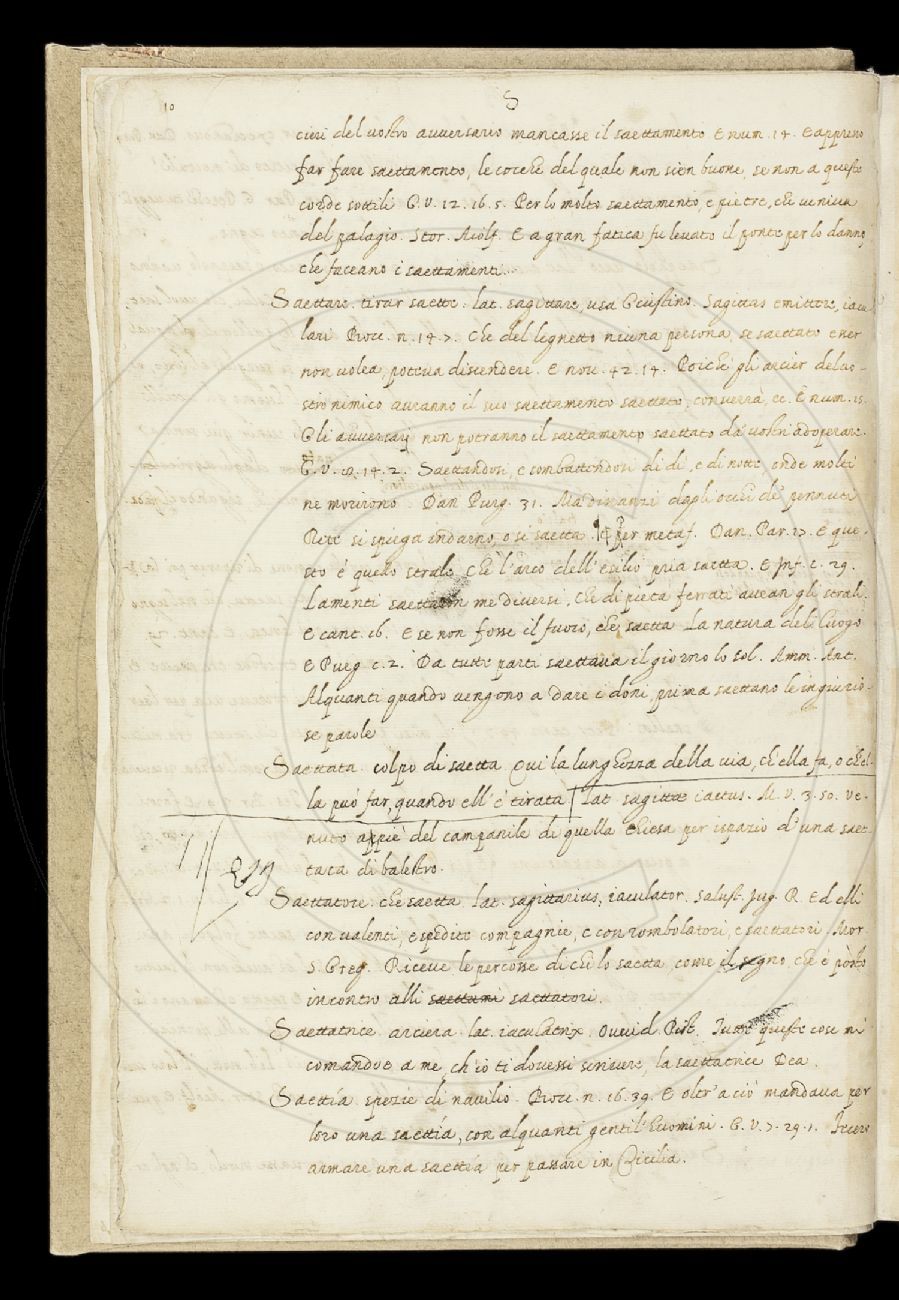 10
S
cieri del vostro avversario mancasse il saettamento E num. 14. E appresso
far fare saettamento, le cocche del quale non sien buone, se non a queste
corde sottili G. V. 12. 16. 5. Per lo molto saettamento, e pietre, che veniva
del palagio. Stor. Aiolf. E a gran fatica fu levato il ponte per lo danno,
che faceano i saettamenti.
Saettare. tirar saette. lat. sagittare, usa Giustino. Sagittas emittere, iacu-
lari Bocc. n. 14 7. Che del legnetto niuna persona, se saettato esser
non volea, poteva discendere. E nov. 42. 14. Poiché gli arcier del vo-
stro nimico avranno il suo saettamento saettato, converrà, ec. E num. 15.
Gli avversarij non potranno il saettamento saettato da' vostri adoperare.
G. V. 14. 2. Saettandosi, e combattendosi di dì, e di notte onde molti
ne morirono. Dan Purg. 31. Ma dinanzi dagli occhi de' pennuti
Rete si spiega indarno, o si saetta. ¶ Per metaf. Dan. Par. 17. E que-
sto è quello strale Che l'arco dell'esilio pria saetta. E Inf. c. 29.
Lamenti saettaron me diversi, Che di pietà ferrati avean gli strali.
E cant. 16. E se non fosse il fuoco, che saetta La natura del luogo
E Purg c. 2. Da tutte parti saettava il giorno lo Sol. Amm. Ant.
Alquanti quando vengono a dare i doni, prima saettano le ingiurio-
se parole
Saettata colpo di saetta Cui la lunghezza della via, ch'ella fa, o ch'el-
la può far, quando ell'è tirata lat. sagittæ iactus. M. V. 3. 50. Ve-
nuto appiè del campanile di quella chiesa per ispazio d'una saet-
tata di balestro.
Saettatore. che saetta. lat. sagittarius, iaculator. Salust. Jug. R. Ed elli
con valenti, e spedite compagnie, e con rombolatori, e saettatori. Mor.
S. Greg. Riceve le percosse di chi lo saetta, come il segno che è posto
incontro alli saettami saettatori.
Saettatrice arciera. lat. iaculatrix. Ovvid. Pist. queste cose mi
comandoe a me, ch'io ti dovessi scrivere, la saettatrice Dea.
Saettía. spezie di navilio. Bocc. n. 16. 39. E oltr'a ciò mandava per
loro una saettía, con alquanti gentil'huomini. G. V. 7. 29. 1. Fecero
armare una saettía per passare in Cicilia.